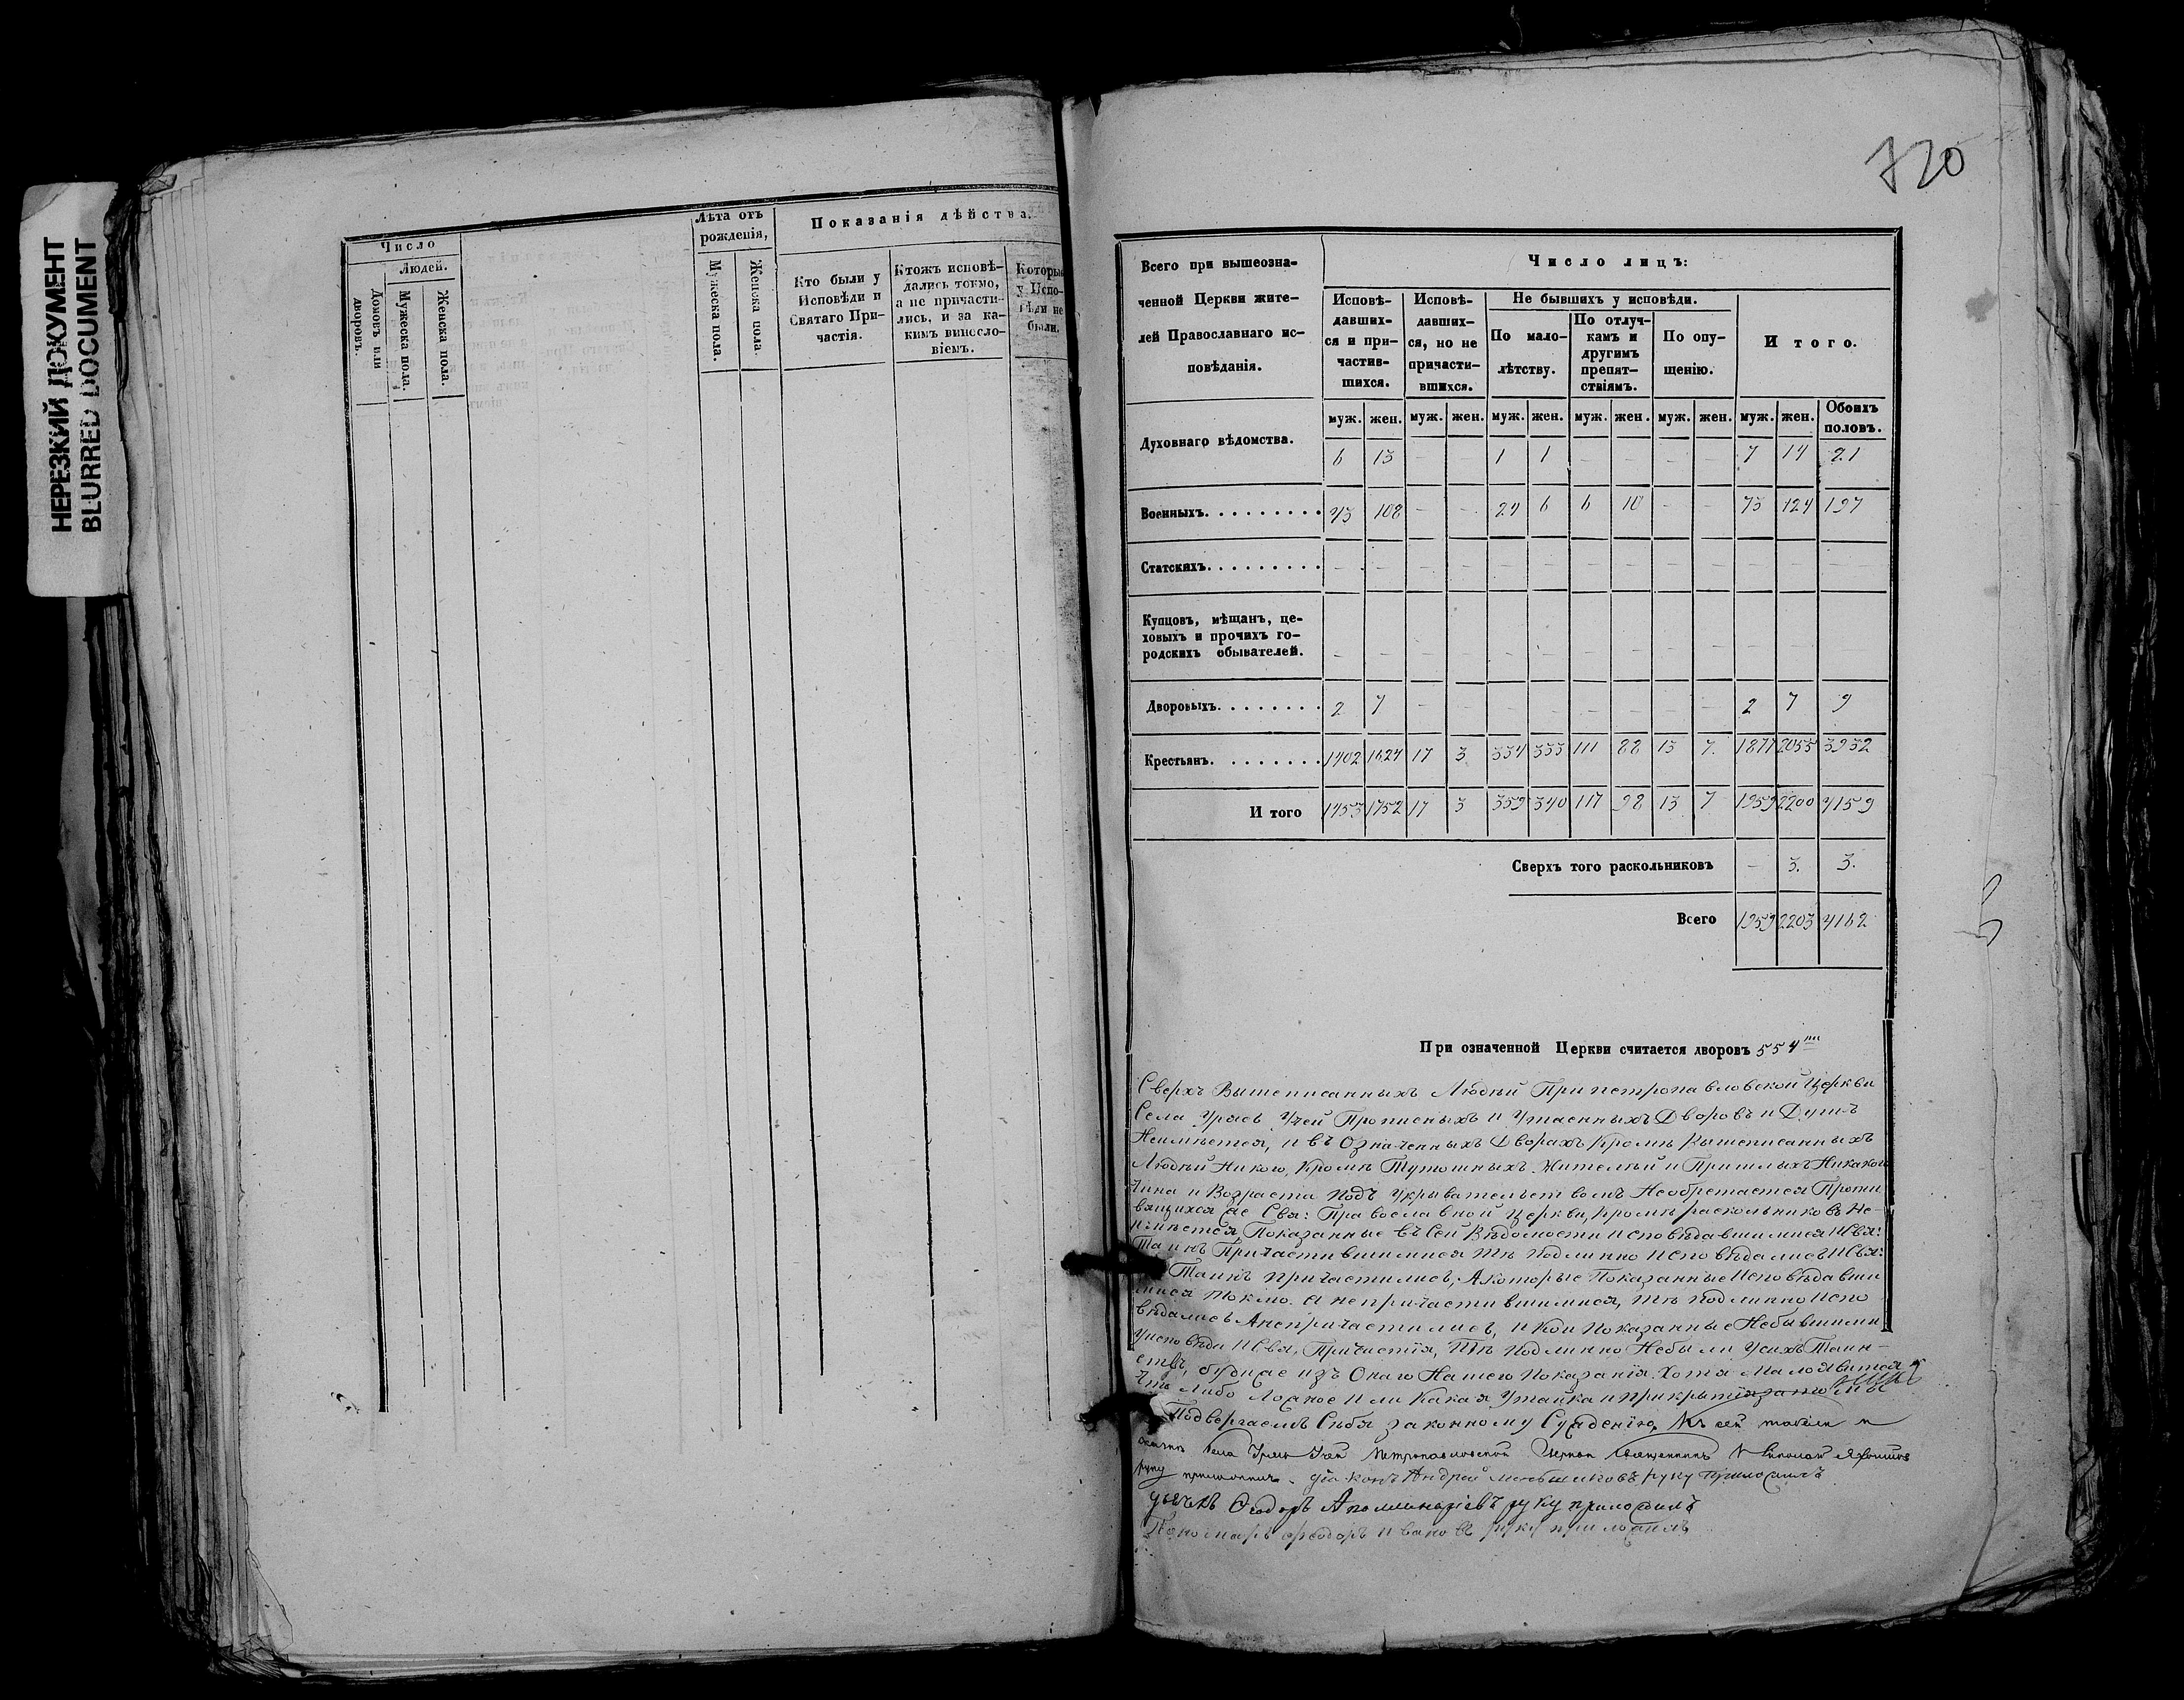 НЕРЕЗКИЙ ДОКУМЕНТ
BLURRED DOCUMENT
Число
Людей.
Домовъ или дворовъ.
Мужеска пола.
Женска пола.
Лѣта отъ рожденія,
Мужеска пола.
Женска пола.
Показанія дѣйства.
Кто были у
Исповѣди и
Святаго При-
частія.
Ктожъ исповѣ-
дались токмо,
а не причасти-
лись, и за ка-
кимъ винесло-
віемъ.
Которые
у Испо-
вѣди не
были.
720
Всего при вышеозна-
ченной Церкви жите-
лей Православнаго ис-
повѣданія.
Число лицъ:
Исповѣ-
давших-
ся и при-
частив-
шихся.
Исповѣ-
давших-
ся, но не
причасти-
вшихся.
Не бывшихъ у исповѣди.
По мало-
лѣтству.
По отлуч-
камъ и
другимъ
препят-
ствіямъ.
По опу-
щенію.
И того.
муж. жен. муж. жен. муж. жен. муж. жен. муж. жен. муж. жен. Обоихъ половъ.
Духовнаго вѣдомства. 6 13 — — 1 1 — — — — 7 14 21
Военныхъ. 43 108 — — 24 6 6 10 — — 73 124 197
Статскихъ. — — — — — — — — — — — — —
Купцовъ, мѣщанъ, це-
ховыхъ и прочихъ го-
родскихъ обывателей. — — — — — — — — — — — — —
Дворовыхъ. 2 7 — — — — — — — — 2 7 9
Крестьянъ. 1402 1624 17 3 334 333 111 88 13 7 1877 2055 3932
И того 1453 1752 17 3 359 340 117 98 13 7 1959 2200 4159
Сверхъ того раскольниковъ — 3. 3.
Всего 1959 2203 4162
При означенной Церкви считается дворовъ 554
Сверхъ Вышеписанныхъ Людѣй При петропавловской Церкви
Села Урясь Учей Прописныхъ и Утаенныхъ Дворовъ и Душъ
Неимѣется, и въ Означенныхъ Дворахъ Кромѣ Вышеписанныхъ
Людѣй Никого, Кромѣ Тутошныхъ Жителѣй и Пришлыхъ Никакого
Чина и Возраста Подъ Укрывательствомъ Необретается Проти
вящихся же Свя: Православной Церкви, Кромѣ раскольниковъ Не-
имѣется, Показанные въ Сей Вѣдомости Исповѣдавшимися И Свя:
Таинъ Причастившимися Тѣ Подлинно Исповѣдались И Свя:
Таинъ Причастились, А которые Показанные Исповѣдавши
мися Токмо. А непричастившимися, Тѣ Подлинно Испо
вѣдались А непричастились, и Кои Показанные Небывшими
У исповѣди И Свя, Причастія, Тѣ Подлинно Небыли У сихъ Таин-
ствъ, будже изъ Онаго Нашего Показанія Хотя Мало явится
что либо Ложное Или Какая Утайка и прикрытія
Подвергаемъ Себя законному Сужденію, Къ сей
села Урясь Учей Петропавловской Церкви Священникъ Николай
руку приложилъ. Діаконъ Андрей Меньшиковъ руку приложилъ
дьячекъ Феодоръ Аполлинаріевъ руку приложилъ
Пономарь феодоръ Ивановъ руку приложилъ